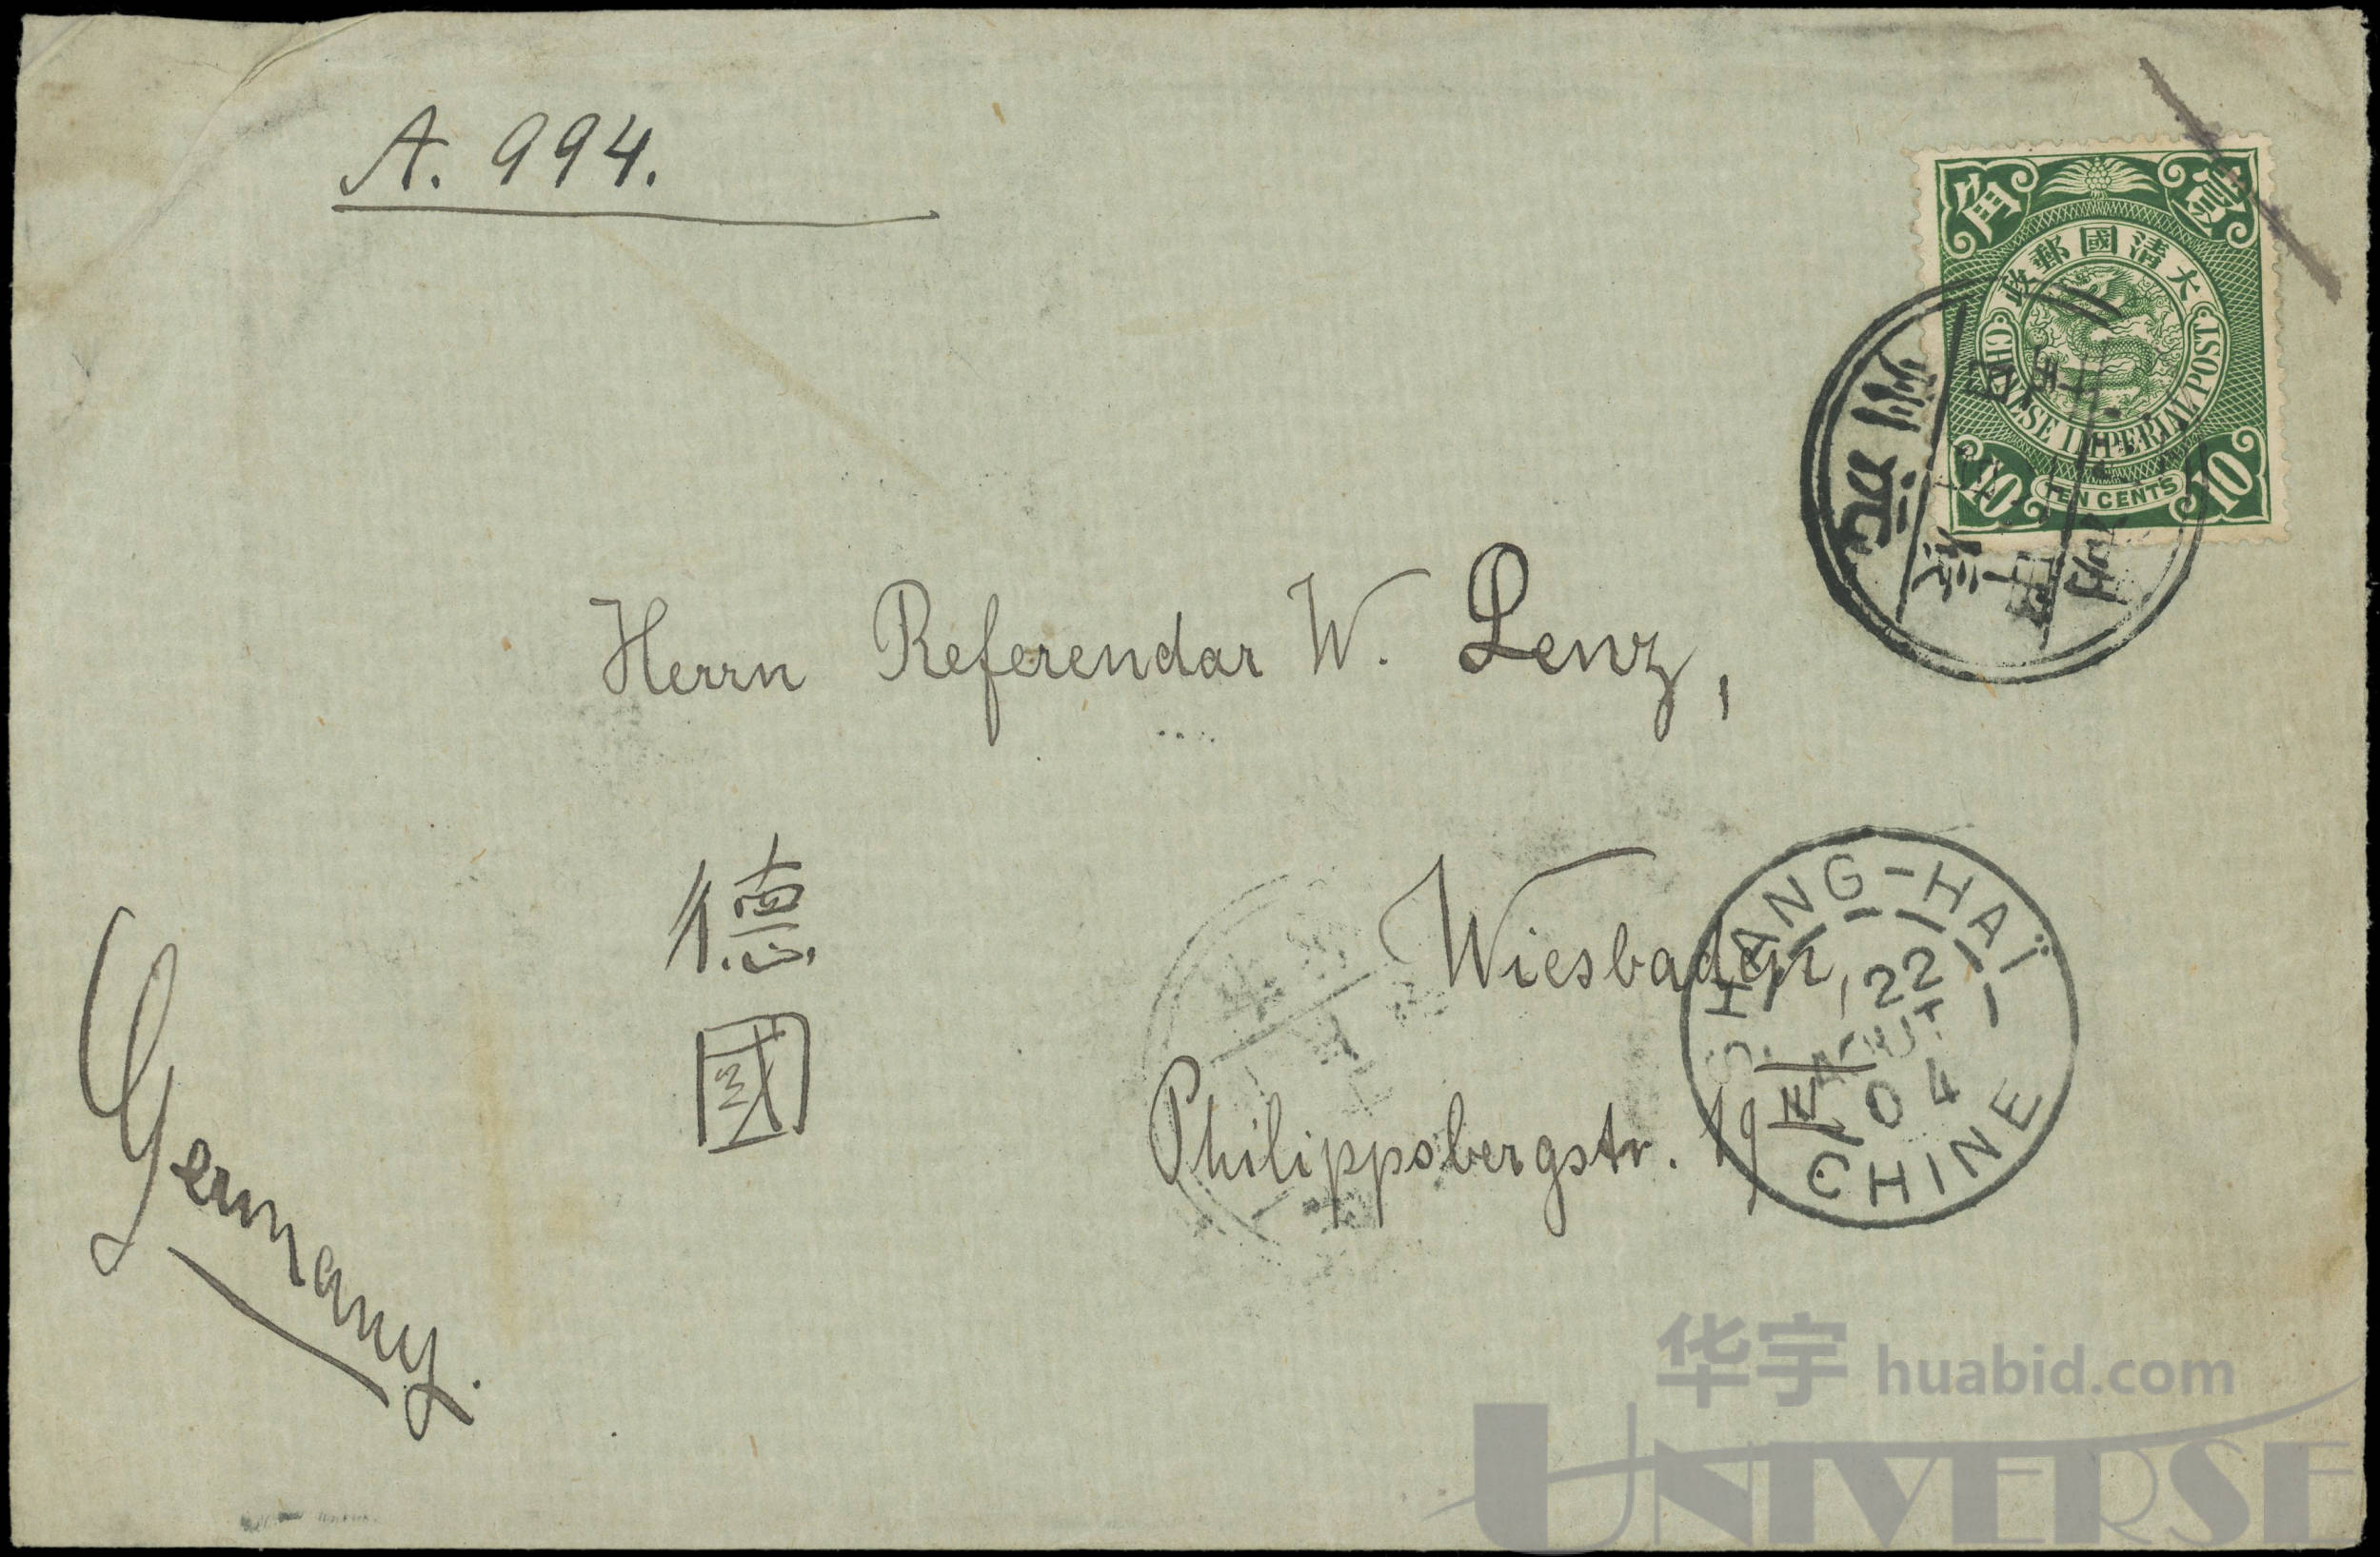 A. 994.
角 壹
大清國郵政
CHINESE IMPERIAL POST
10 TEN CENTS 10
Herrn Referendar W. Lenz,
德國
Wiesbaden,
Philippsbergstr. 19
SHANG-HAÏ
22
AOUT
04
CHINE
Germany.
华宇 huabid.com
UNIVERSE